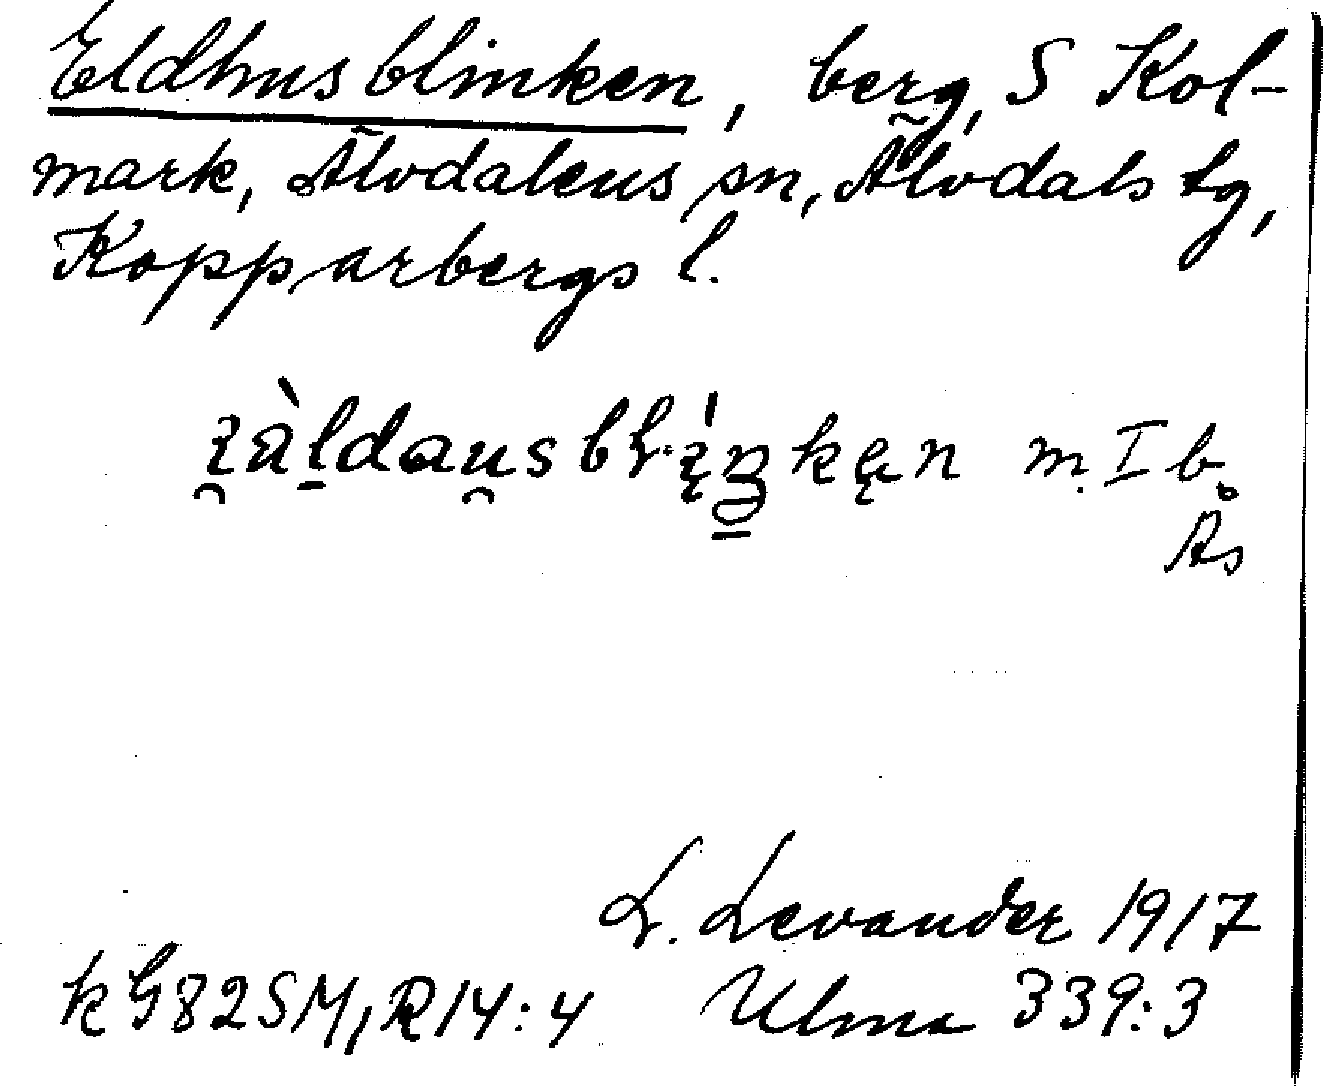 Eldhusblinken, berg, S Kol-
mark, Älvdalens sn, Älvdals tg,
Kopparbergs l.
m. I b.
As
L. Levander 1917
k G82SM, R14:4 Ulma 339:3